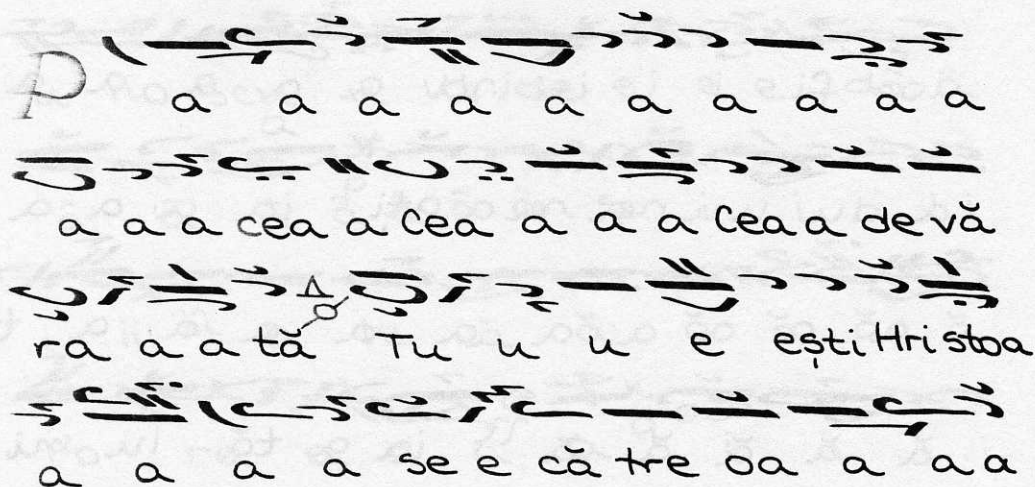 P a a a a a a a a a a
a a a cea a cea a a a cea a de vă
ra a a tă Tu u u e ești Hri stoa
a a a a se e că tre oa a a a